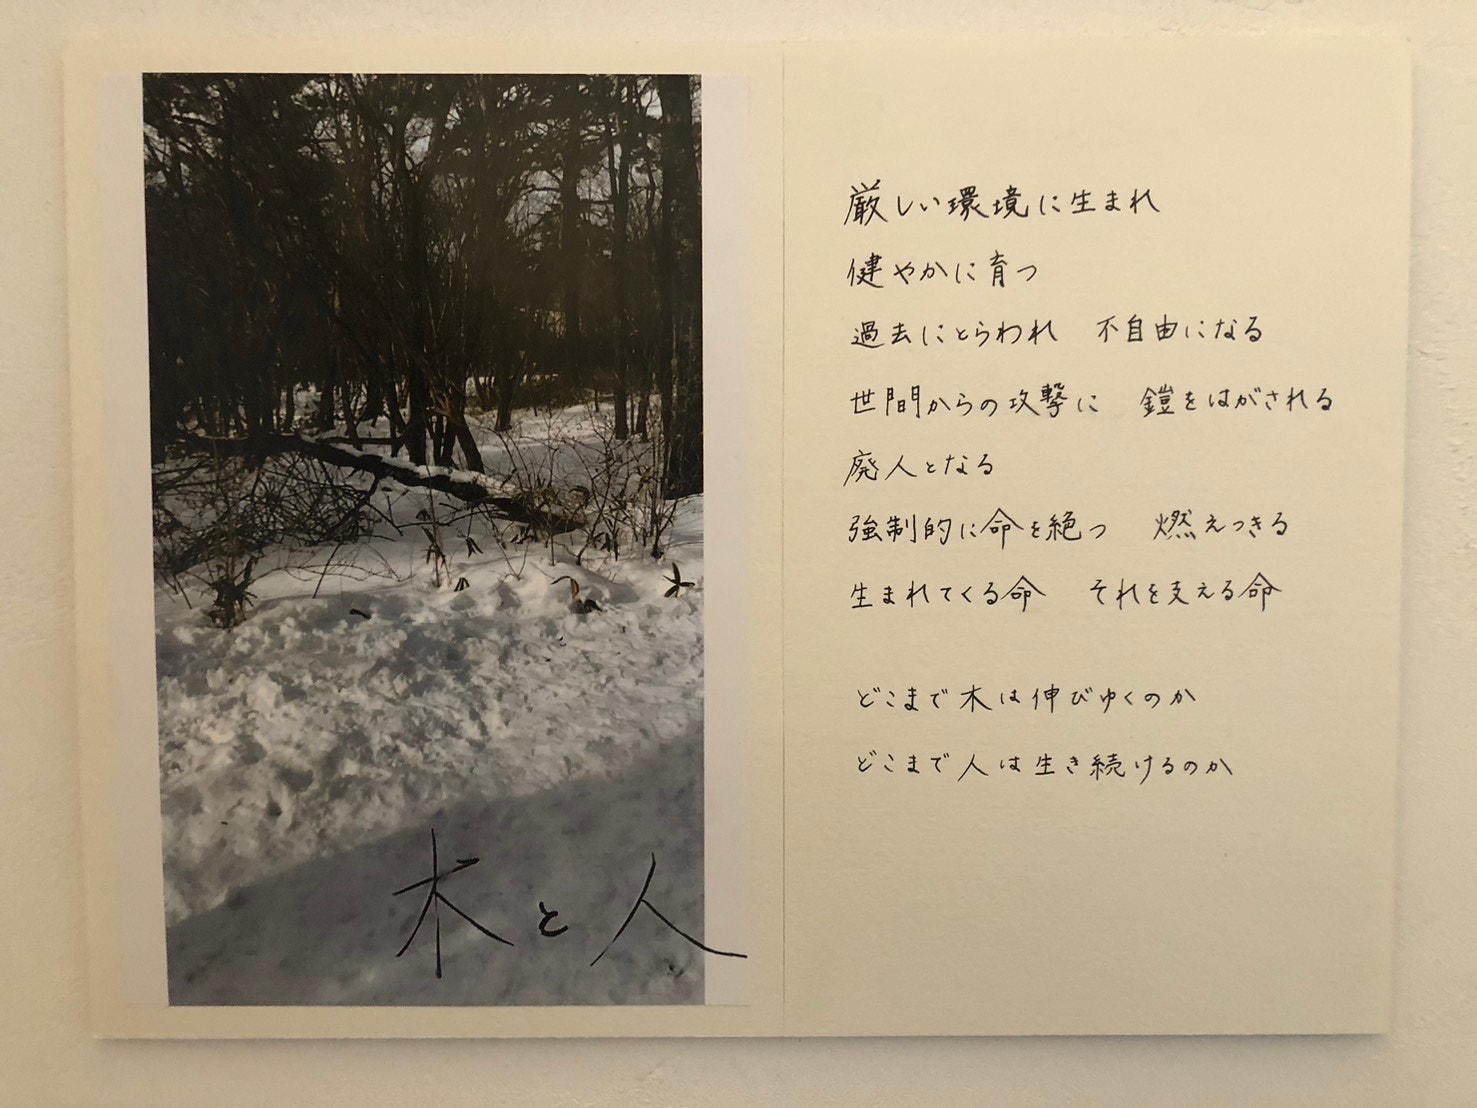 木と人
厳しい環境に生まれ
健やかに育つ
過去にとらわれ　不自由になる
世間からの攻撃に　鎧をはがされる
廃人となる
強制的に命を絶つ　燃えつきる
生まれてくる命　それを支える命
どこまで木は伸びゆくのか
どこまで人は生き続けるのか